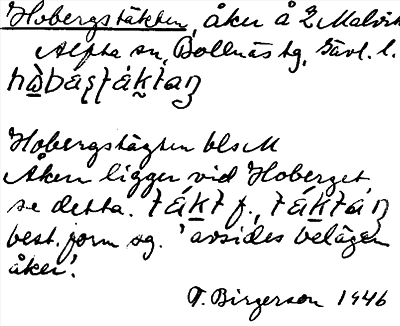 Hobergstäkten, åker å 2 Malvik
Alfta sn, Bollnäs tg, Gävl. l.
Hobergstägten blsM
Åkern ligger vid Hoberget
se detta. f.,
best. form sg. 'avsides belägen
åker'.
T. Birgerson 1946